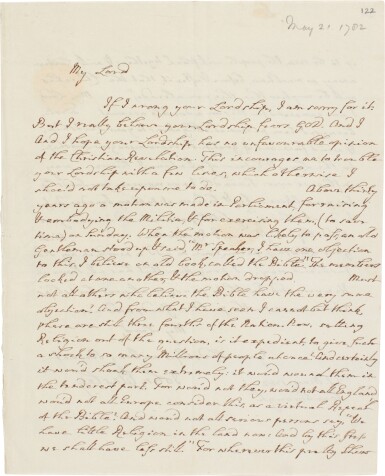 122
May 21. 1782
My Lord
If I wrong your Lordship, I am sorry for it.
But I really believe your Lordship fears GOD. And I
And I hope your Lordship has no unfavourable opinion
of the Christian Revelation. This incourages me to trouble
your Lordship with a few lines, which otherwise I
shou'd not take upon me to do. Above thirty
years ago a motion was made in Parliament, for raising
& embodying the Militia, & for exercising them, (to save
time) on Sunday. When the motion was likely to pass an old
Gentleman stood up & said "Mr Speaker, I have one objection
to this, I believe an old book, call'd the Bible." The members
look'd at one another, & the motion dropped. Must
not all others who believe the Bible have the very same
objection? And from what I have seen I cannot but think,
these are still three fourths of the Nation. Now, setting
Religion out of the question, is it expedient, to give such
a shock to so many Millions of people at once? And certainly
it would shock them extremely, it wou'd wound them in
the tenderest part. For wou'd not they, wou'd not all England
wou'd not all Europe consider this, as a virtual Repeal
of the Bible? And wou'd not all serious persons say "We
have little Religion in the land now: but by this Step
we shall have less still." For wherever this pretty Shew